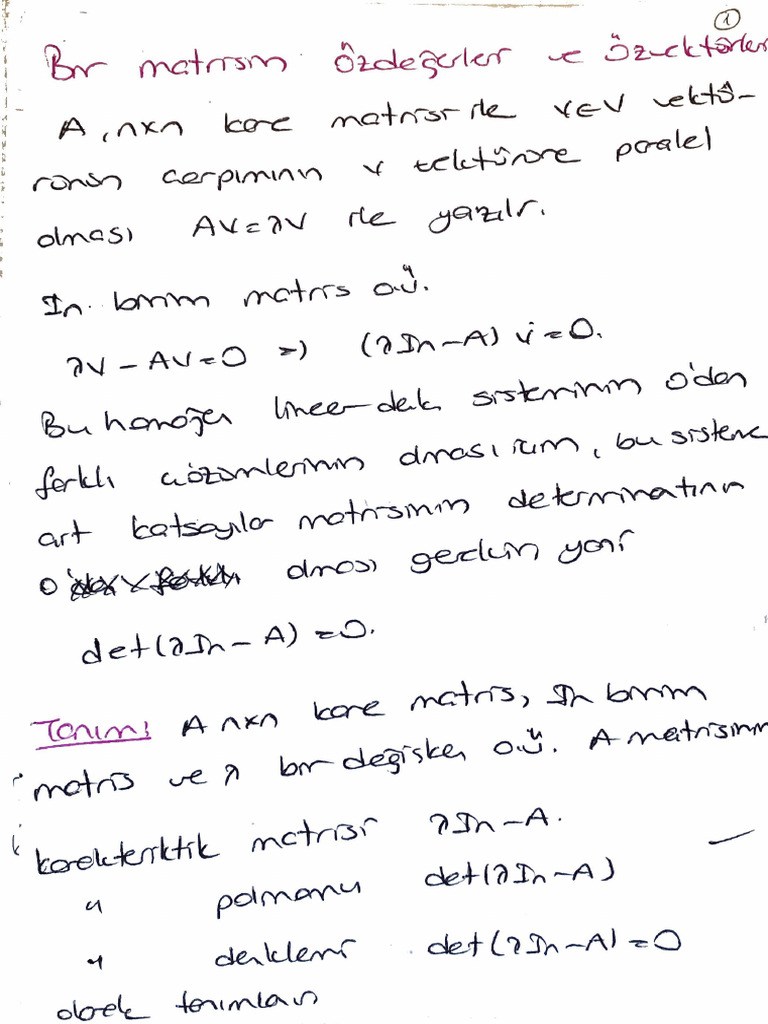 1
Bir matrisin özdeğerleri ve özvektörleri
A, nxn kare matrisi ile v∈V vektö-
rünün çarpımının v vektörüne paralel
olması Av=λv ile yazılır.
In birim matris o.ü.
λv - Av = 0 => (λIn - A) v = 0.
Bu homojen lineer denk sisteminin 0'dan
farklı çözümlerinin olması için, bu sisteme
ait katsayılar matrisinin determinatının
0 olması gerekir yani
det(λIn - A) = 0.
Tanım: A nxn kare matris, In birim
matris ve λ bir değişken o.ü. A matrisinin
karekteriktik matrisi λIn - A.
" polinomu det(λIn - A)
" denklemi det(λIn - A) = 0
olarak tanımlanır